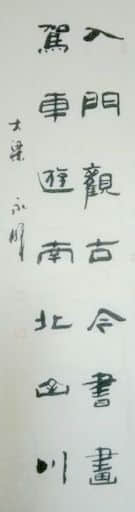 入門觀古今書畫
駕車遊南北山川
大梁 永順